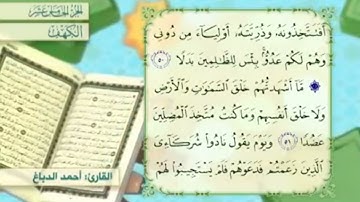 الجزء الخامس عشر
الكهف
أَفَتَتَّخِذُونَهُۥ وَذُرِّيَّتَهُۥٓ أَوْلِيَآءَ مِن دُونِى
وَهُمْ لَكُمْ عَدُوٌّۢ بِئْسَ لِلظَّـٰلِمِينَ بَدَلًا ٥٠
مَّآ أَشْهَدتُّهُمْ خَلْقَ ٱلسَّمَـٰوَٰتِ وَٱلْأَرْضِ
وَلَا خَلْقَ أَنفُسِهِمْ وَمَا كُنتُ مُتَّخِذَ ٱلْمُضِلِّينَ
عَضُدًا ٥١ وَيَوْمَ يَقُولُ نَادُوا۟ شُرَكَآءِىَ
ٱلَّذِينَ زَعَمْتُمْ فَدَعَوْهُمْ فَلَمْ يَسْتَجِيبُوا۟ لَهُمْ
القارئ: أحمد الدباغ